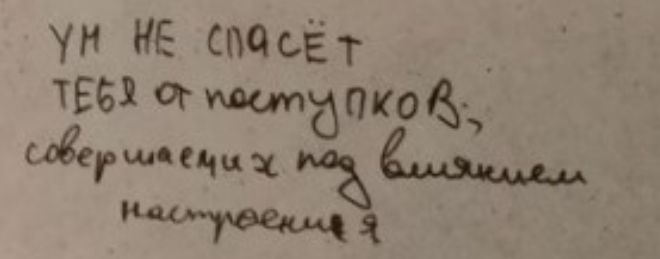 УМ НЕ СПАСЁТ
ТЕБЯ от поступков,
совершаемих под влиянием
настроения